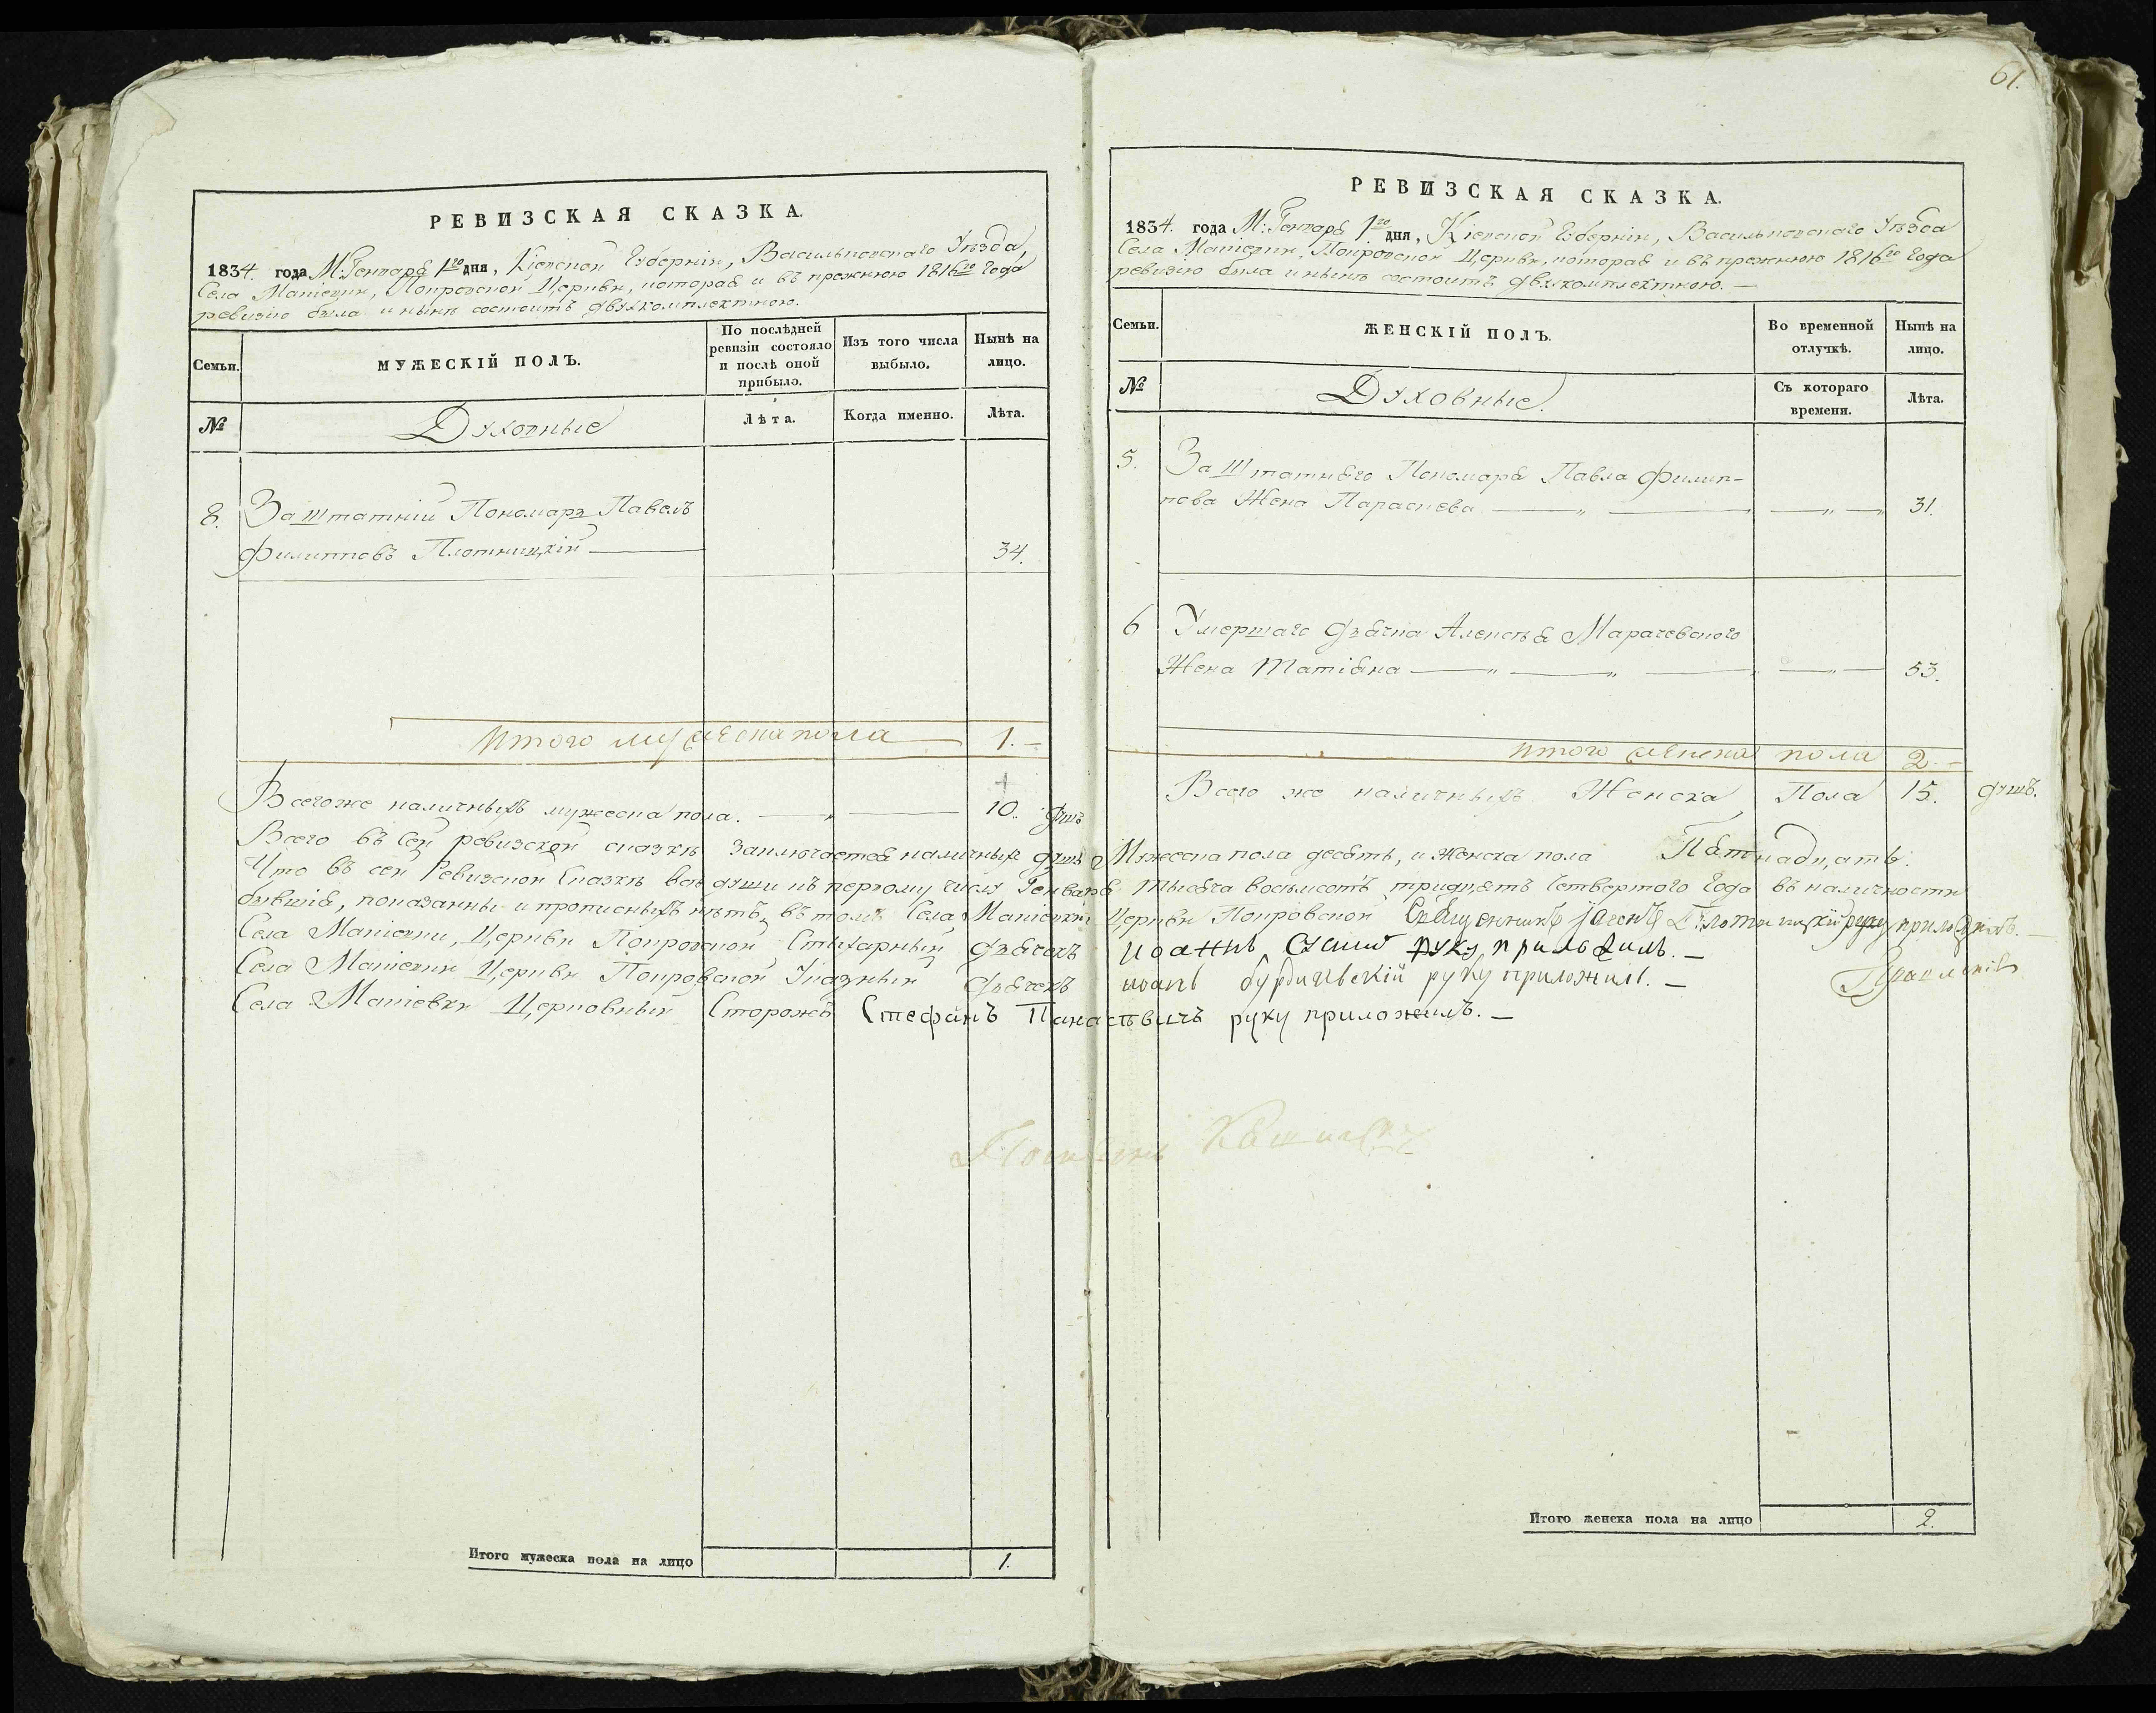 61.
РЕВИЗСКАЯ СКАЗКА.
1834. года М: Генваря 1го дня, Кіевской Губерніи, Васильковскаго Уѣзда,
Села Маніевки, Покровской Церкви, которая и въ прежнюю 1816го года
ревизію была и нынѣ состоитъ двухкомплектною.
Семьи.
МУЖЕСКІЙ ПОЛЪ.
По послѣдней ревизіи состояло и послѣ оной прибыло.
Изъ того числа выбыло.
Нынѣ на лицо.
№
Духовные
Лѣта.
Когда именно.
Лѣта.
8. Заштатній Пономарь Павелъ
Филиповъ Плотницкій 34.
Итого мужеска пола 1.
Всегоже наличныхъ мужеска пола. 10. душъ
РЕВИЗСКАЯ СКАЗКА.
1834. года М: Генваря 1го дня, Кіевской Губерніи, Васильковскаго Уѣзда
Села Маніевки, Покровской Церкви, которая и въ прежнюю 1816го года
ревизію была и нынѣ состоитъ двухкомплектною.
Семьи.
ЖЕНСКІЙ ПОЛЪ.
Во временной отлучкѣ.
Нынѣ на лицо.
№
Духовные.
Съ котораго времени.
Лѣта.
5. Заштатнаго Пономаря Павла Филип-
пова Жена Параскева 31.
6 Умершаго дьячка Алексѣя Марачевского
Жена Татіяна 53.
итого женска пола 2.
Всего же наличныхъ Женска Пола 15. душъ.
Всего въ сей ревизской сказкѣ заключается наличныхъ душъ Мужеска пола десять, и женска пола Пятнадцать.
Что въ сей Ревизской Сказкѣ всѣ души къ первому числу Генваря тысяча восьмсотъ тридцять Четвертого Года въ наличности
бывшія, показанны и прописныхъ нѣтъ, въ томъ Села Маніевки Церкви Покровской Священникъ Плотницкій руку приложилъ.
Села Маніевки, Церкви Покровской Стихарный дьячекъ Иоаннъ руку приложилъ.
Села Маніевки Церкви Покровской Указный дьячекъ иоанъ бурдиевскій руку приложилъ.
Села Маніевки Церковный Сторожъ Стефанъ Панасѣвичъ руку приложилъ.
Итого мужеска пола на лицо 1.
Итого женска пола на лицо 2.